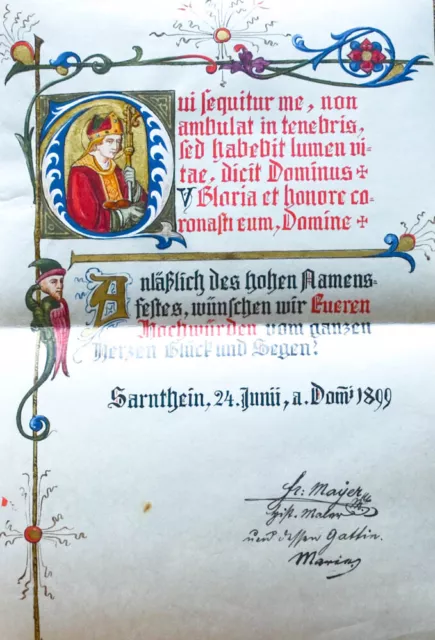 Qui sequitur me, non
ambulat in tenebris,
sed habebit lumen vi-
tae, dicit Dominus +
V Gloria et honore co-
ronasti eum, Domine +
Anläßlich des hohen Namens-
festes, wünschen wir Eueren
Hochwürden vom ganzen
Herzen Glück und Segen!
Sarnthein, 24. Junii, a. Domi 1899
Fr: Mayer
Hist. Maler
und dessen Gattin.
Maria